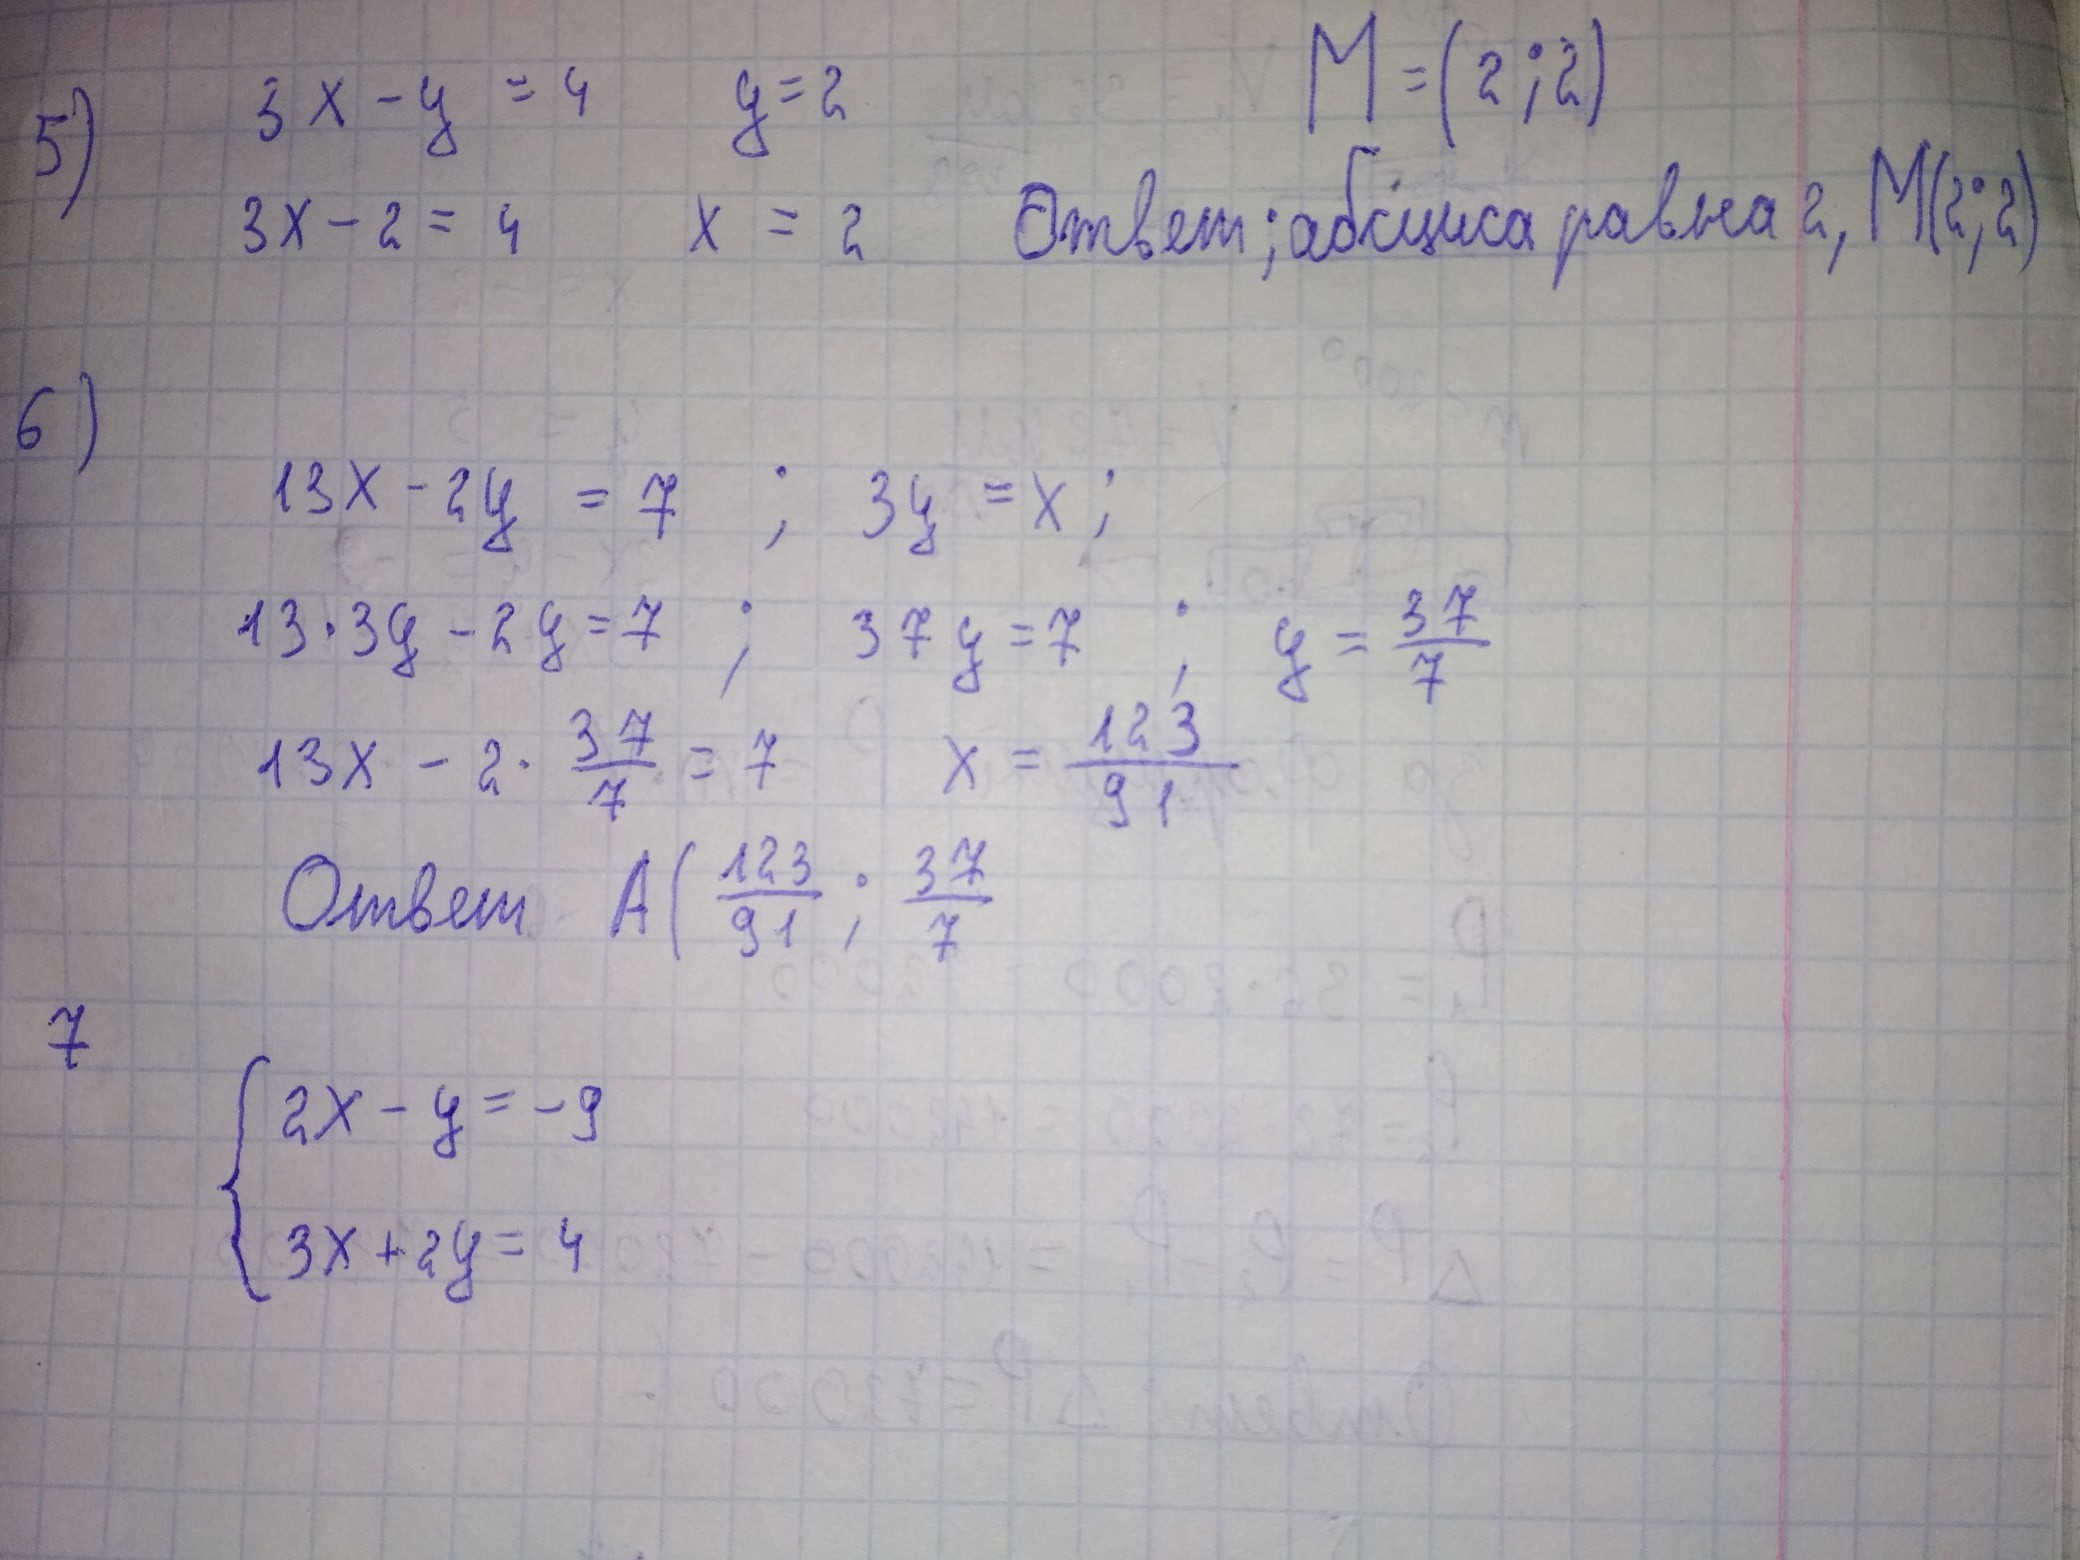 5) 3x - y = 4 y = 2 M = (2; 2)
3x - 2 = 4 x = 2 Ответ; абсциса равна 2, M(2; 2)
6)
13x - 2y = 7 ; 3y = x ;
13·3y - 2y = 7 ; 37y = 7 ; y = 37/7
13x - 2 · 37/7 = 7 x = 123/91
Ответ A( 123/91 ; 37/7
7
{ 2x - y = -9
3x + 2y = 4